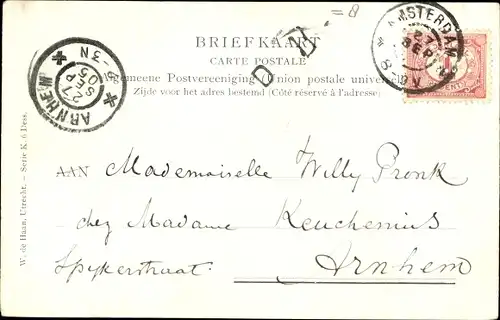 =8
BRIEFKAART
CARTE POSTALE
Algemeene Postvereeniging (Union postale universelle)
Zijde voor het adres bestemd (Côté réservé à l'adresse)
AMSTERDAM
27
SEP
ARNHEM
27
SEP
5-3N
CENT
AAN Mademoiselle Willy Pronk
chez Madame Keuchenius
Spijkerstraat. Arnhem
W. de Haan, Utrecht. – Serie K. 6 Dess.